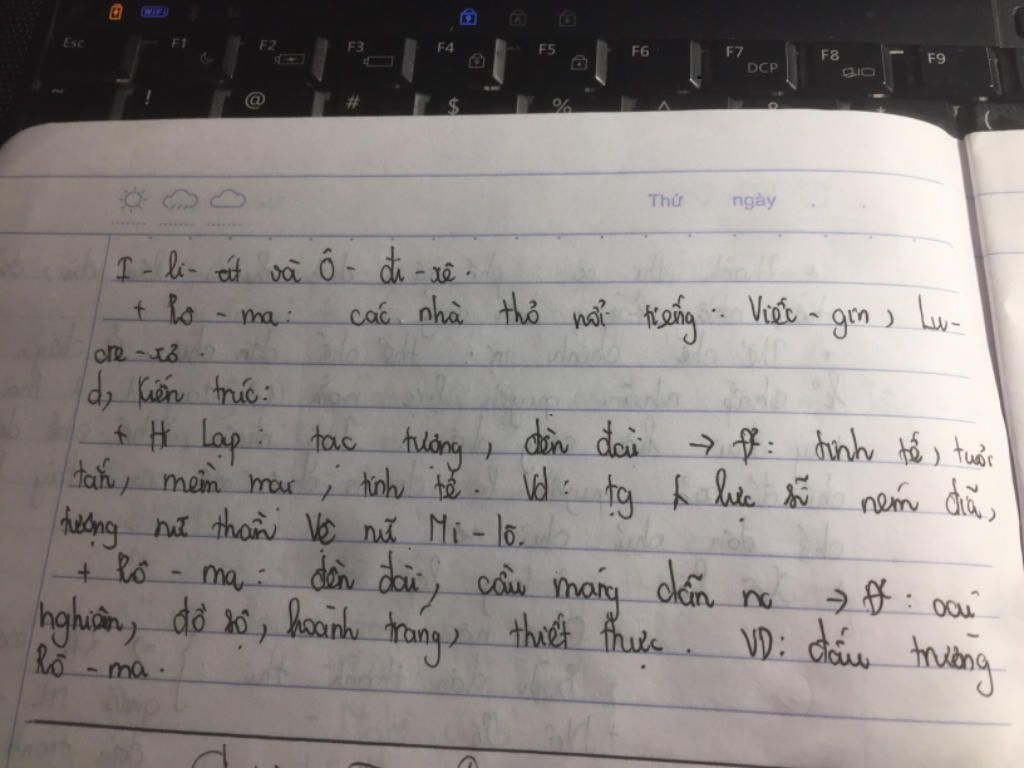 WiFi
Esc F1 F2 F3 F4 F5 F6 F7 F8 F9
DCP
~ ! @ # $ % ^ & * (
Thứ ngày
I - li - át và Ô - đi - xê.
+ Rô - ma: các nhà thơ nổi tiếng: Viếc - gin, Lu-
cre - xơ.
d, Kiến trúc:
+ Hi Lạp: tạc tượng, đền đài → : tinh tế, tươi
tắn, mềm mại, tinh tế. Vd: tg lực sĩ ném đĩa,
tượng nữ thần Vệ nữ Mi - lô.
+ Rô - ma: đền đài, cầu máng dẫn nc → : oai
nghiêm, đồ sộ, hoành tráng, thiết thực. VD: đấu trường
Rô - ma.